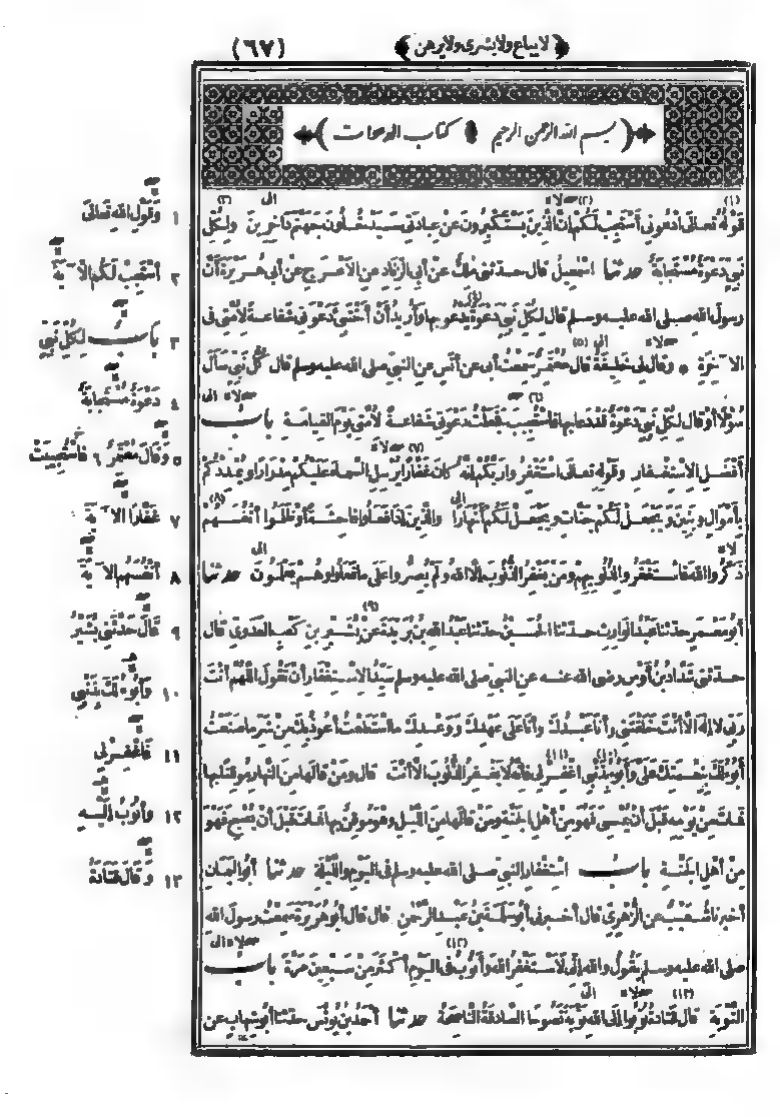 ﴿ لا يباع ولا يشرى ولا يرهن ﴾ (٦٧)
﴿ بسم الله الرحمن الرحيم ۞ كتاب الدعوات ﴾
قَوْلُهُ تعالى ادْعُونِي أَسْتَجِبْ لَكُمْ إِنَّ الَّذِينَ يَسْتَكْبِرُونَ عَنْ عِبَادَتِي سَيَدْخُلُونَ جَهَنَّمَ دَاخِرِينَ ولِكُلِّ
نَبِيٍّ دَعْوَةٌ مُسْتَجَابَةٌ حدثنا اسْمعِيلُ قال حدثني مالِكٌ عنْ أَبِي الزِّنَادِ عنِ الاَعْرَجِ عنْ أبي هُرَيْرَةَ أنَّ
رسولَ اللهِ صلى الله عليه وسلم قال لِكُلِّ نَبِيٍّ دَعْوَةٌ يَدْعُو بها وأُرِيدُ أنْ أَخْتَبِيَ دَعْوَتِي شَفَاعَةً لِأُمَّتِي فِي
الآخِرَةِ * وقال لِي خَلِيفَةُ قال مُعْتَمِرٌ سَمِعْتُ أبي عن أنَسٍ عنِ النبيِّ صلى الله عليه وسلم قال كُلُّ نَبِيٍّ سَأَلَ
سُؤْلًا أوْ قال لِكُلِّ نَبِيٍّ دَعْوَةٌ قَدْ دَعَا بِهَا فاسْتُجِيبَ فَجَعَلْتُ دَعْوَتِي شَفَاعَةً لِأُمَّتِي يَوْمَ القِيَامَةِ بابُ
أَفْضَلِ الاِسْتِغْفَارِ وقَوْلِهِ تعالى اسْتَغْفِرُوا رَبَّكُمْ إِنَّهُ كَانَ غَفَّارًا يُرْسِلِ السَّمَاءَ عَلَيْكُمْ مِدْرَارًا ويُمْدِدْكُمْ
بِأَمْوَالٍ وبَنِينَ وَيَجْعَلْ لَكُمْ جَنَّاتٍ ويَجْعَلْ لَكُمْ أَنْهَارًا والَّذِينَ إذَا فَعَلُوا فَاحِشَةً أَوْ ظَلَمُوا أَنْفُسَهُمْ
ذَكَرُوا اللهَ فَاسْتَغْفَرُوا لِذُنُوبِهِمْ ومَنْ يَغْفِرُ الذُّنُوبَ إلَّا اللهُ ولَمْ يُصِرُّوا عَلَى ما فَعَلُوا وهُمْ يَعْلَمُونَ حدثنا
أبُو مَعْمَرٍ حدثنا عَبْدُ الوَارِثِ حدثنا الحُسَيْنُ حدثنا عَبْدُ اللهِ بنُ بُرَيْدَةَ عنْ بُشَيْرِ بنِ كَعْبٍ العَدَوِيِّ قال
حدثني شَدَّادُ بنُ أَوْسٍ رضى الله عنه عنِ النبيِّ صلى الله عليه وسلم سَيِّدُ الاِسْتِغْفَارِ أنْ تَقُولَ اللَّهُمَّ أنْتَ
رَبِّي لا إِلهَ إلَّا أنْتَ خَلَقْتَنِي وأنَا عَبْدُكَ وأنَا عَلَى عَهْدِكَ وَوَعْدِكَ ما اسْتَطَعْتُ أعُوذُ بِكَ مِنْ شَرِّ ما صَنَعْتُ
أبُوءُ لَكَ بِنِعْمَتِكَ عَلَيَّ وأَبُوءُ بِذَنْبِي اغْفِرْ لِي فإنَّهُ لا يَغْفِرُ الذُّنُوبَ إلَّا أنْتَ قال ومَنْ قالَهَا مِنَ النَّهَارِ مُوقِنًا بِهَا
فَمَاتَ مِنْ يَوْمِهِ قَبْلَ أنْ يُمْسِيَ فَهُوَ مِنْ أهْلِ الجَنَّةِ ومَنْ قالَهَا مِنَ اللَّيْلِ وهْوَ مُوقِنٌ بِهَا فَمَاتَ قَبْلَ أنْ يُصْبِحَ فَهْوَ
مِنْ أهْلِ الجَنَّةِ بابُ اسْتِغْفَارِ النبيِّ صلى الله عليه وسلم فِي اليَوْمِ واللَّيْلَةِ حدثنا أبُو اليَمَانِ
أخبرنا شُعَيْبٌ عنِ الزُّهْرِيِّ قال أخبرني أبُو سَلَمَةَ بنُ عَبْدِ الرَّحْمنِ قال قال أبُو هُرَيْرَةَ سَمِعْتُ رسولَ اللهِ
صلى الله عليه وسلم يَقُولُ واللهِ إنِّي لَاَسْتَغْفِرُ اللهَ وأتُوبُ فِي اليَوْمِ أكْثَرَ مِنْ سَبْعِينَ مَرَّةً بابُ
التَّوْبَةِ قال قَتَادَةُ تُوبُوا إلَى اللهِ تَوْبَةً نَصُوحًا الصَّادِقَةُ النَّاصِحَةُ حدثنا أحْمَدُ بنُ يُونُسَ حدثنا أبُو شِهَابٍ عن
١ وَقَوْلِ اللهِ تَعَالَى
٢ أَسْتَجِبْ لَكُمُ الآيَةَ
٣ بابُ لِكُلِّ نَبِيٍّ
٤ دَعْوَةٌ مُسْتَجَابَةٌ
٥ وَقَالَ مُعْتَمِرٌ ٦ فَاسْتُجِيبَتْ
٧ غَفَّارًا الآيَةَ
٨ أَنْفُسَهُمُ الآيَةَ
٩ قَالَ حَدَّثَنِي بُشَيْرُ
١٠ وَأَبُوءُ لَكَ بِذَنْبِي
١١ فَاغْفِرْ لِي
١٢ وأتُوبُ إِلَيْهِ
١٣ وَقَالَ قَتَادَةُ